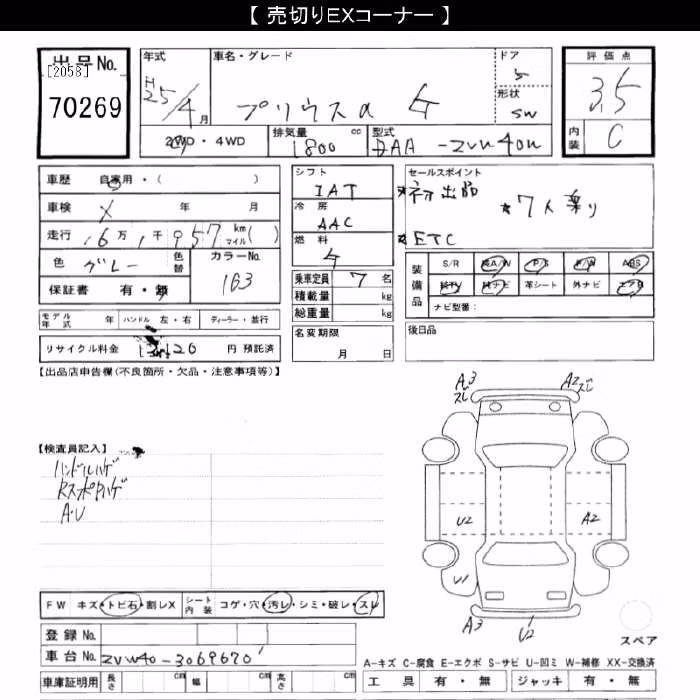 【 売切りEXコーナー 】
出品No.
[2058]
70269
年式 車名・グレード ドア
H25/4月 プリウスα 5
形状
SW
評価点
3.5
内装 C
2WD・4WD 排気量 1800 cc 型式 DAA-ZVW40W
車歴 自家用・( )
車検 X 年 月
走行 16万1千957 km マイル( )
色 グレー 色替 カラーNo. 163
保証書 有・無
シフト
IAT
冷房
AAC
燃料
乗車定員 7 名
積載量 kg
総重量 kg
名変期限
月 日
セールスポイント
初出品 ★7人乗り
★ETC
装備品 S/R A/W P/S P/W ABS
純TV 純ナビ 革シート 外ナビ エアB
ナビ型番:
後日品
モデル年式 年 ハンドル 左・右 ディーラー・並行
リサイクル料金 円 預託済
【出品店申告欄(不良箇所・欠品・注意事項等)】
【検査員記入】
ハンドルハゲ
A・U
A3 スレ A2 スレ
U2 A2
U1
A3 U2
スペア
FW キズ・トビ石・割レX シート内装 コゲ・穴・汚レ・シミ・破レ・スレ
登録 No.
車台 No. ZVW40-3069670
車庫証明用 長さ cm 幅 cm 高さ cm
A-キズ C-腐食 E-エクボ S-サビ U-凹ミ W-補修 XX-交換済
工具 有・無 ジャッキ 有・無